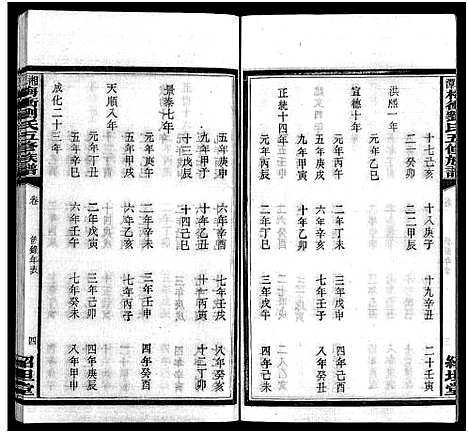 十七年己亥 十八庚子 十九辛丑 二十壬寅
二一癸卯 二二甲辰
洪熙一年
元年乙巳
宣德十年
元年丙午 二年丁未 三年戊申 四年己酉
五年庚戌 六年辛亥 七年壬子 八年癸丑
九年甲寅 十年乙卯
正統十四年
元年丙辰 二年丁巳 三年戊午 四年己未
五年庚申 六年辛酉 七年壬戌 八年癸亥
九年甲子 十年乙丑 十一丙寅 十二丁卯
十三戊辰 十四己巳
景泰七年
元年庚午 二年辛未 三年壬申 四年癸酉
五年甲戌 六年乙亥 七年丙子
天順八年
元年丁丑 二年戊寅 三年己卯 四年庚辰
五年辛巳 六年壬午 七年癸未 八年甲申
成化二十三年
湘 衝劉氏五修族譜 卷 年表 四 堂